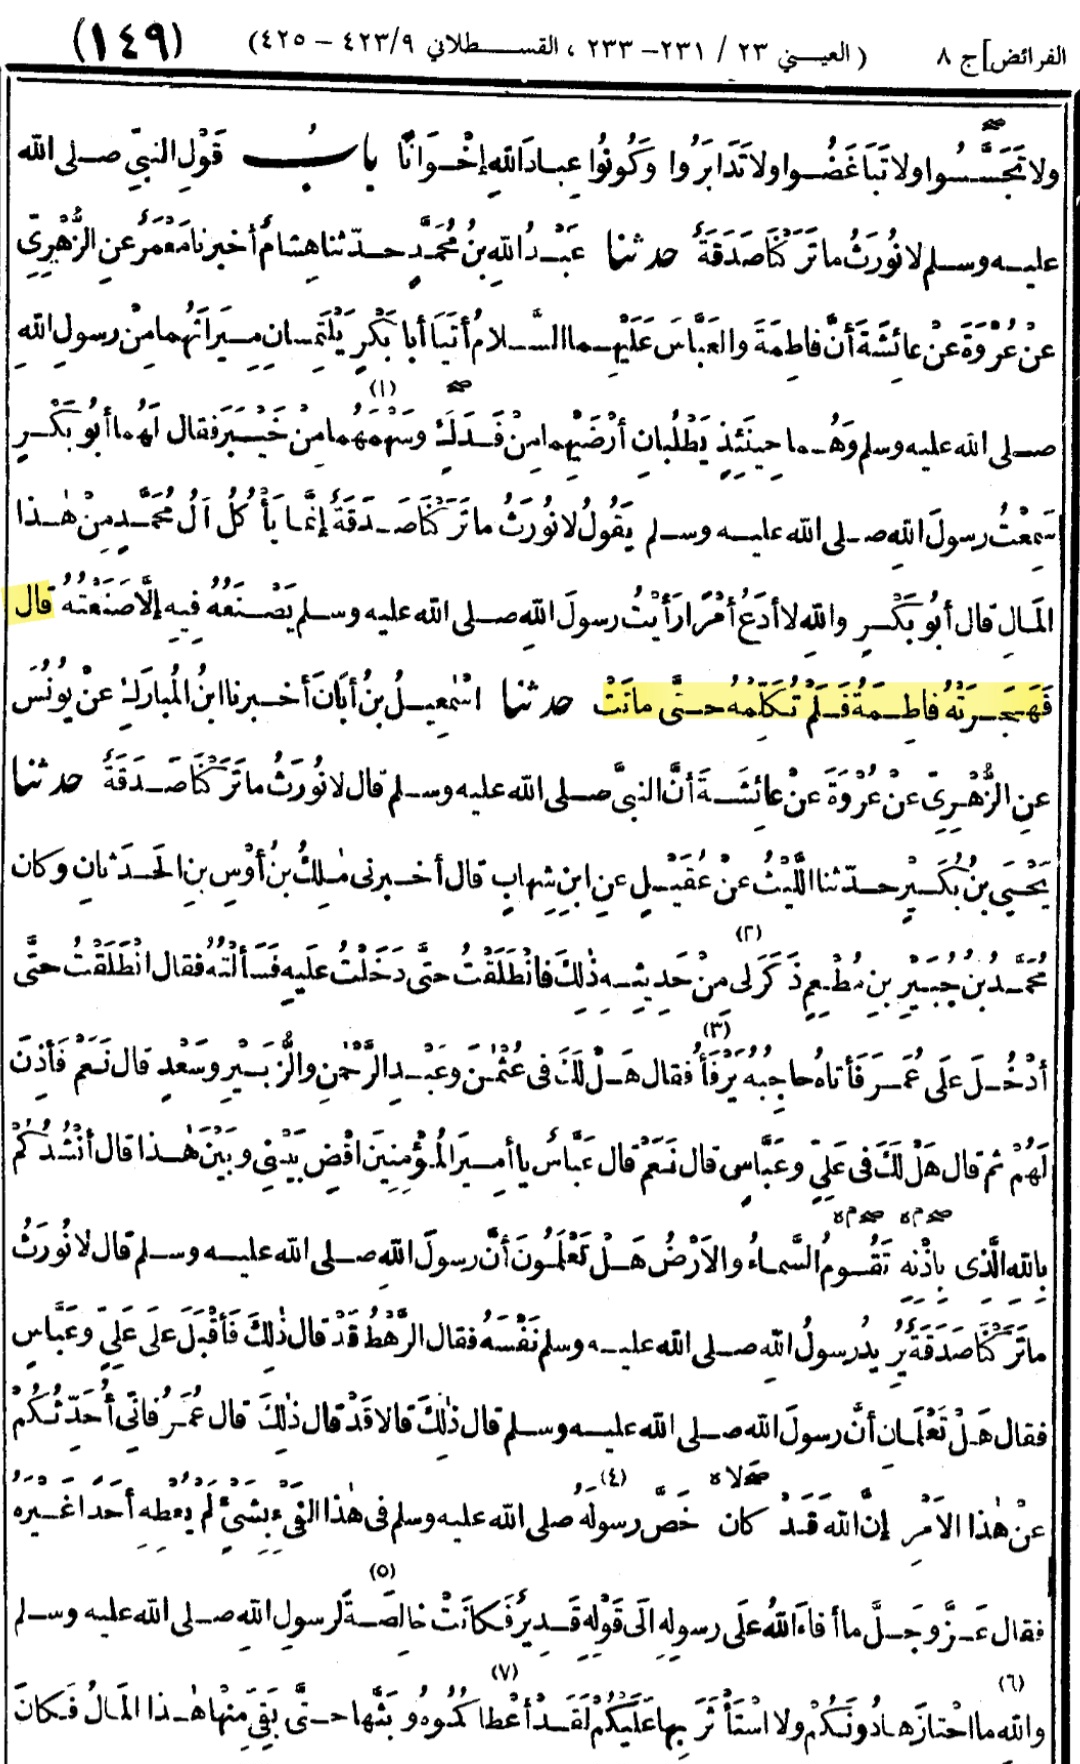 الفرائض] ج ٨ (العيــني ٢٣ / ٢٣١– ٢٣٣ ، القســطلاني ٤٢٣/٩ – ٤٢٥) (١٤٩)
صح
ولا تَجَسَّسُوا ولا تَبَاغَضُوا ولا تَدَابَرُوا وَكُونُوا عِبادَ اللهِ إخْوَانًا بابُ قَوْلِ النبيِّ صلى الله
عليه وسلم لا نُورَثُ ما تَرَكْنَا صَدَقَةٌ حدثنا عَبْدُ اللهِ بنُ مُحَمَّدٍ حدّثنا هِشامٌ أخبرنا مَعْمَرٌ عنِ الزُّهْرِيِّ
عنْ عُرْوَةَ عنْ عائشَةَ أنَّ فاطِمَةَ والعَبَّاسَ عَلَيْهِما السَّلامُ أتَيَا أبا بَكْرٍ يَلْتَمِسانِ مِيرَاثَهُما مِنْ رسولِ اللهِ
(١) صح
صلى الله عليه وسلم وَهُما حِينَئِذٍ يَطْلُبانِ أرْضَيْهِما مِنْ فَدَكَ وسَهْمَهُما مِنْ خَيْبَرَ فقال لَهُما أبُو بَكْرٍ
سَمِعْتُ رسولَ اللهِ صلى الله عليه وسلم يَقُولُ لا نُورَثُ ما تَرَكْنَا صَدَقَةٌ إنَّما يَأْكُلُ آلُ مُحَمَّدٍ مِنْ هٰذا
المَالِ قال أبُو بَكْرٍ واللهِ لا أدَعُ أمْرًا رَأيْتُ رسولَ اللهِ صلى الله عليه وسلم يَصْنَعُهُ فِيهِ إلَّا صَنَعْتُهُ قال
فَهَجَرَتْهُ فاطِمَةُ فَلَمْ تُكَلِّمْهُ حتَّى ماتَتْ حدثنا اسْمٰعِيلُ بنُ أبَانَ أخبرنا ابنُ المُبارَكِ عنْ يُونُسَ
عنِ الزُّهْرِيِّ عنْ عُرْوَةَ عنْ عائِشَةَ أنَّ النبيَّ صلى الله عليه وسلم قال لا نُورَثُ ما تَرَكْنَا صَدَقَةٌ حدثنا
يَحْيَى بنُ بُكَيْرٍ حدّثنا اللَّيْثُ عنْ عُقَيْلٍ عنِ ابنِ شِهابٍ قال أخبرنى مٰلِكُ بنُ أوْسِ بنِ الحَدَثانِ وكان
(٢)
مُحَمَّدُ بنُ جُبَيْرِ بنِ مُطْعِمٍ ذَكَرَ لى مِنْ حَدِيثِهِ ذٰلِكَ فانْطَلَقْتُ حتَّى دَخَلْتُ عَلَيهِ فَسَألْتُهُ فقال انْطَلَقْتُ حتَّى
(٣)
أدْخُلَ عَلَى عُمَرَ فَأتاهُ حاجِبُهُ يَرْفَأُ فقال هَلْ لَكَ فى عُثْمٰنَ وعَبْدِ الرَّحْمٰنِ والزُّبَيْرِ وسَعْدٍ قال نَعَمْ فَأذِنَ
لَهُمْ ثم قال هَلْ لَكَ فى عَلِيٍّ وعَبَّاسٍ قال نَعَمْ قال عَبَّاسٌ يا أميرَ المُؤْمِنِينَ اقْضِ بَيْنِى وبَيْنَ هٰذا قال أنْشُدُكُمْ
صح م ه صح م ه
بِاللهِ الَّذِى بِاذْنِهِ تَقُومُ السَّماءُ والارْضُ هَلْ تَعْلَمُونَ أنَّ رسولَ اللهِ صلى الله عليه وسلم قال لا نُورَثُ
ما تَرَكْنَا صَدَقَةٌ يُرِيدُ رسولُ اللهِ صلى الله عليه وسلم نَفْسَهُ فقال الرَّهْطُ قَدْ قال ذٰلِكَ فَأقْبَلَ على عَلِيٍّ وعَبَّاسٍ
فقال هَلْ تَعْلَمَانِ أنَّ رسولَ الله صلى الله عليه وسلم قال ذٰلِكَ قالا قَدْ قال ذٰلِكَ قال عُمَرُ فانِّى أُحَدِّثُكُمْ
(٤)
عنْ هٰذا الامْرِ إنَّ اللهَ قَدْ كان خَصَّ رسولَهُ صلى الله عليه وسلم فى هٰذا الفَىْءِ بِشَىْءٍ لَمْ يُعْطِهِ أحَدًا غَيْرَهُ
(٥)
فقال عَزَّ وجَلَّ ما أفاءَ اللهُ عَلَى رسولِهِ الَى قَوْلِهِ قَدِيرٌ فَكانَتْ خالِصَةً لرسولِ اللهِ صلى الله عليه وسلم
(٦) (٧)
واللهِ ما احْتازَها دُونَكُمْ ولا اسْتَأْثَرَ بِها عَلَيْكُمْ لَقَدْ أعْطاكُمُوهُ وبَثَّها حتَّى بَقِىَ مِنْها هٰذا المَالُ فَكانَ